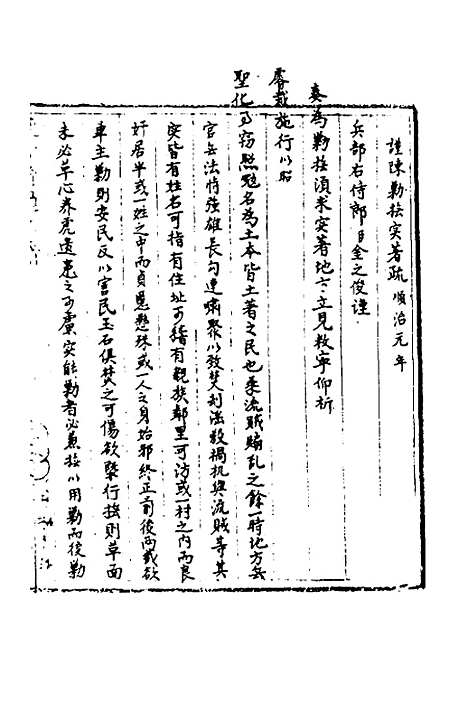 謹陳勦撫實著疏 順治元年
兵部右侍郎臣金之俊謹
奏為勦撫湏求實著地方立見敉寧仰祈
睿裁施行以昭
聖化事窃照兎名為土本皆土著之民也乘流賊煽乱之餘一時地方兵
官無法恃強雄長勾連嘯聚以致焚刦滋殺禍机與流賊等其
实皆有姓名可指有住址可稽有親族鄰里可訪或一村之内而良
奸居半或一姓之中而貞慝懸殊或一人之身始邪終正前後两截欲
車主勦則安民反以害民玉石俱焚之可傷欲槩行撫則革面
未必革心养虎遗患之可虞实能勦者必兼撫以用勦而後勦